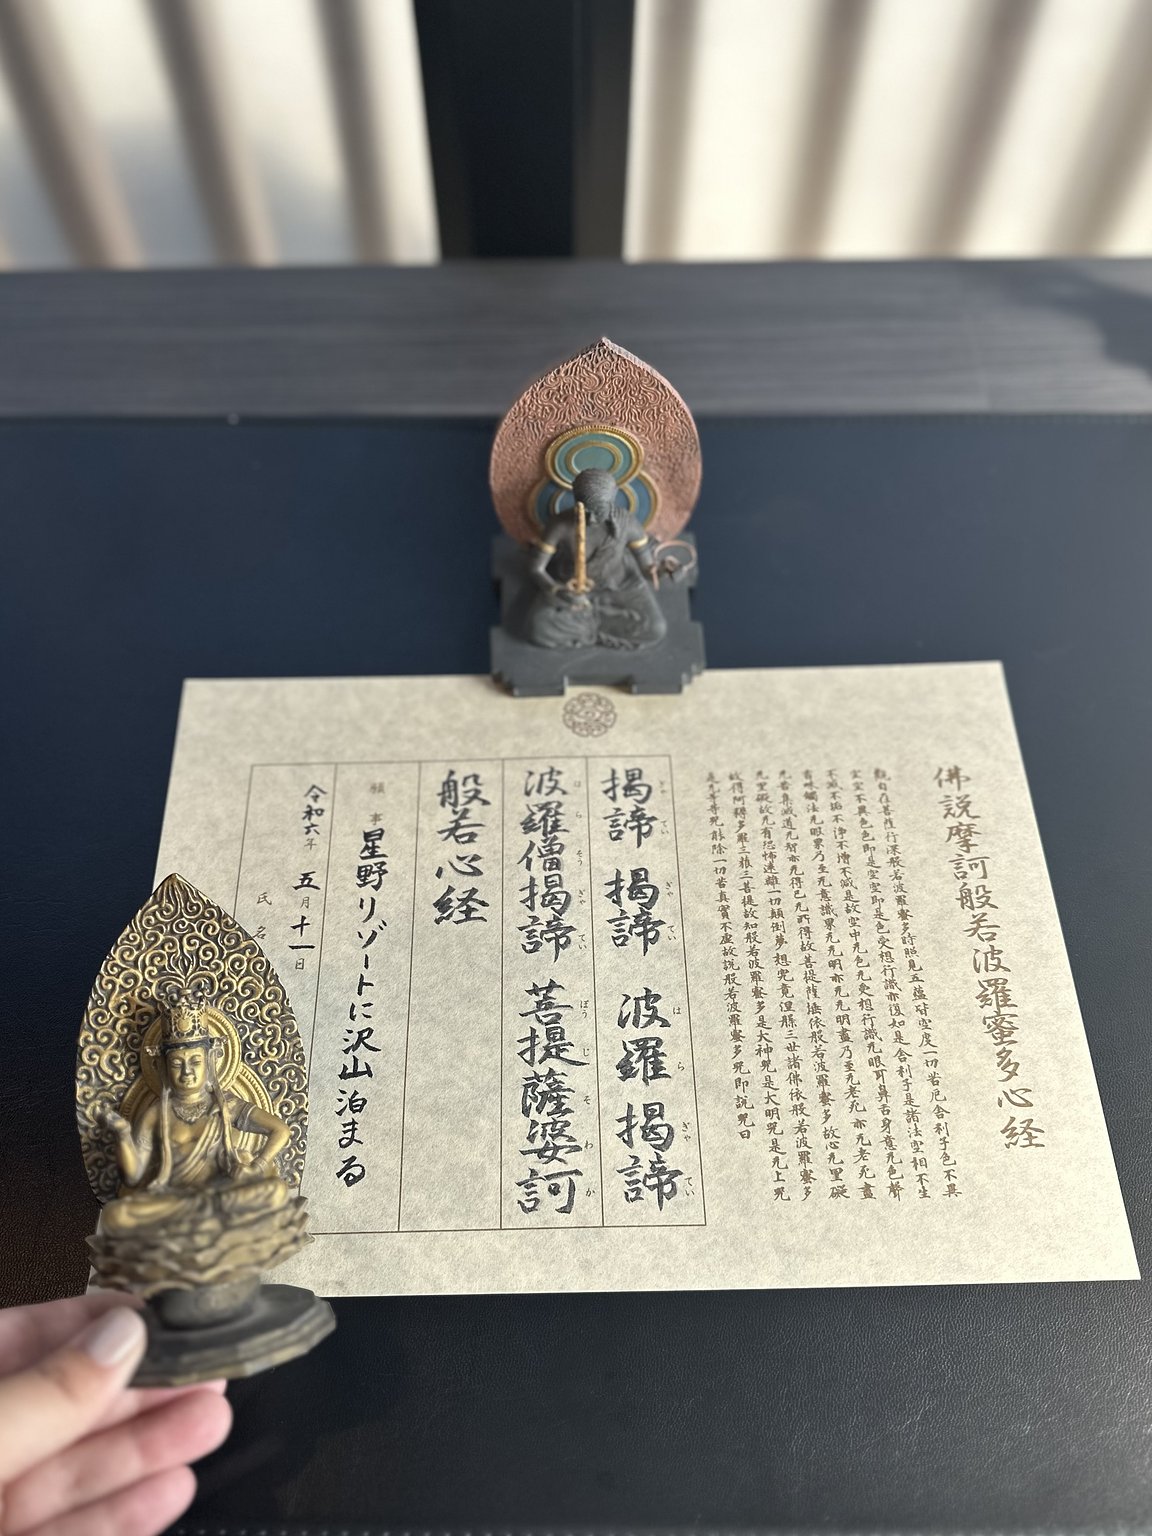 佛説摩訶般若波羅蜜多心経
觀自在菩薩行深般若波羅蜜多時照見五蘊皆空度一切苦厄舍利子色不異
空空不異色色即是空空即是色受想行識亦復如是舍利子是諸法空相不生
不滅不垢不浄不増不減是故空中无色无受想行識无眼耳鼻舌身意无色聲
香味觸法无眼界乃至无意識界无无明亦无无明盡乃至无老死亦无老死盡
无苦集滅道无智亦无得已无所得故菩提薩埵依般若波羅蜜多故心无罣礙
无罣礙故无有恐怖遠離一切顛倒夢想究竟涅槃三世諸佛依般若波羅蜜多
故得阿耨多羅三藐三菩提故知般若波羅蜜多是大神咒是大明咒是无上咒
是无等等咒能除一切苦真實不虚故説般若波羅蜜多咒即説咒曰
ぎゃ てい ぎゃ てい は ら ぎゃ てい
揭諦 揭諦 波羅揭諦
は ら そう ぎゃ てい ぼう じ そ わ か
波羅僧揭諦 菩提薩婆訶
般若心経
願事 星野リゾートに沢山泊まる
令和六年 五月十一日
氏名